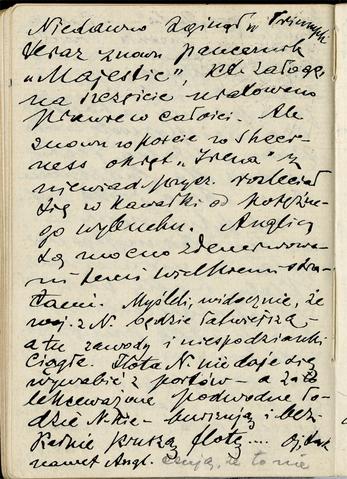 Niedawno zginął "Triumph"
teraz znowu pancernik
„Majestic”, kt. załogę
na szczęście uratowano
prawie w całości. Ale
znowu w porcie w Sheer-
ness okręt „Irena” z
niewiad. przycz. rozleciał
się w kawałki od potężne-
go wybuchu. Anglicy
są mocno zdenerwowa-
ni temi wielkiemi stra-
tami. Myśleli, widocznie, że
woj. z N. będzie łatwiejszą -
a tu zawody i niespodzianki
ciągłe. Flota N. nie daje się
wywabić z portów - a za to
lekceważone podwodne ło-
dzie N-kie - buszują i bez-
karnie pruszą flotę.... Ojdak
nawet Angl. czują, że to nie